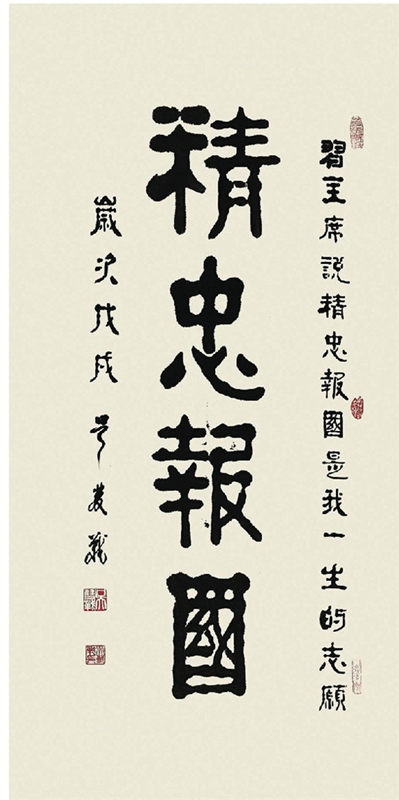 習主席説精忠報國是我一生的志願
精忠報國
歲次戊戌